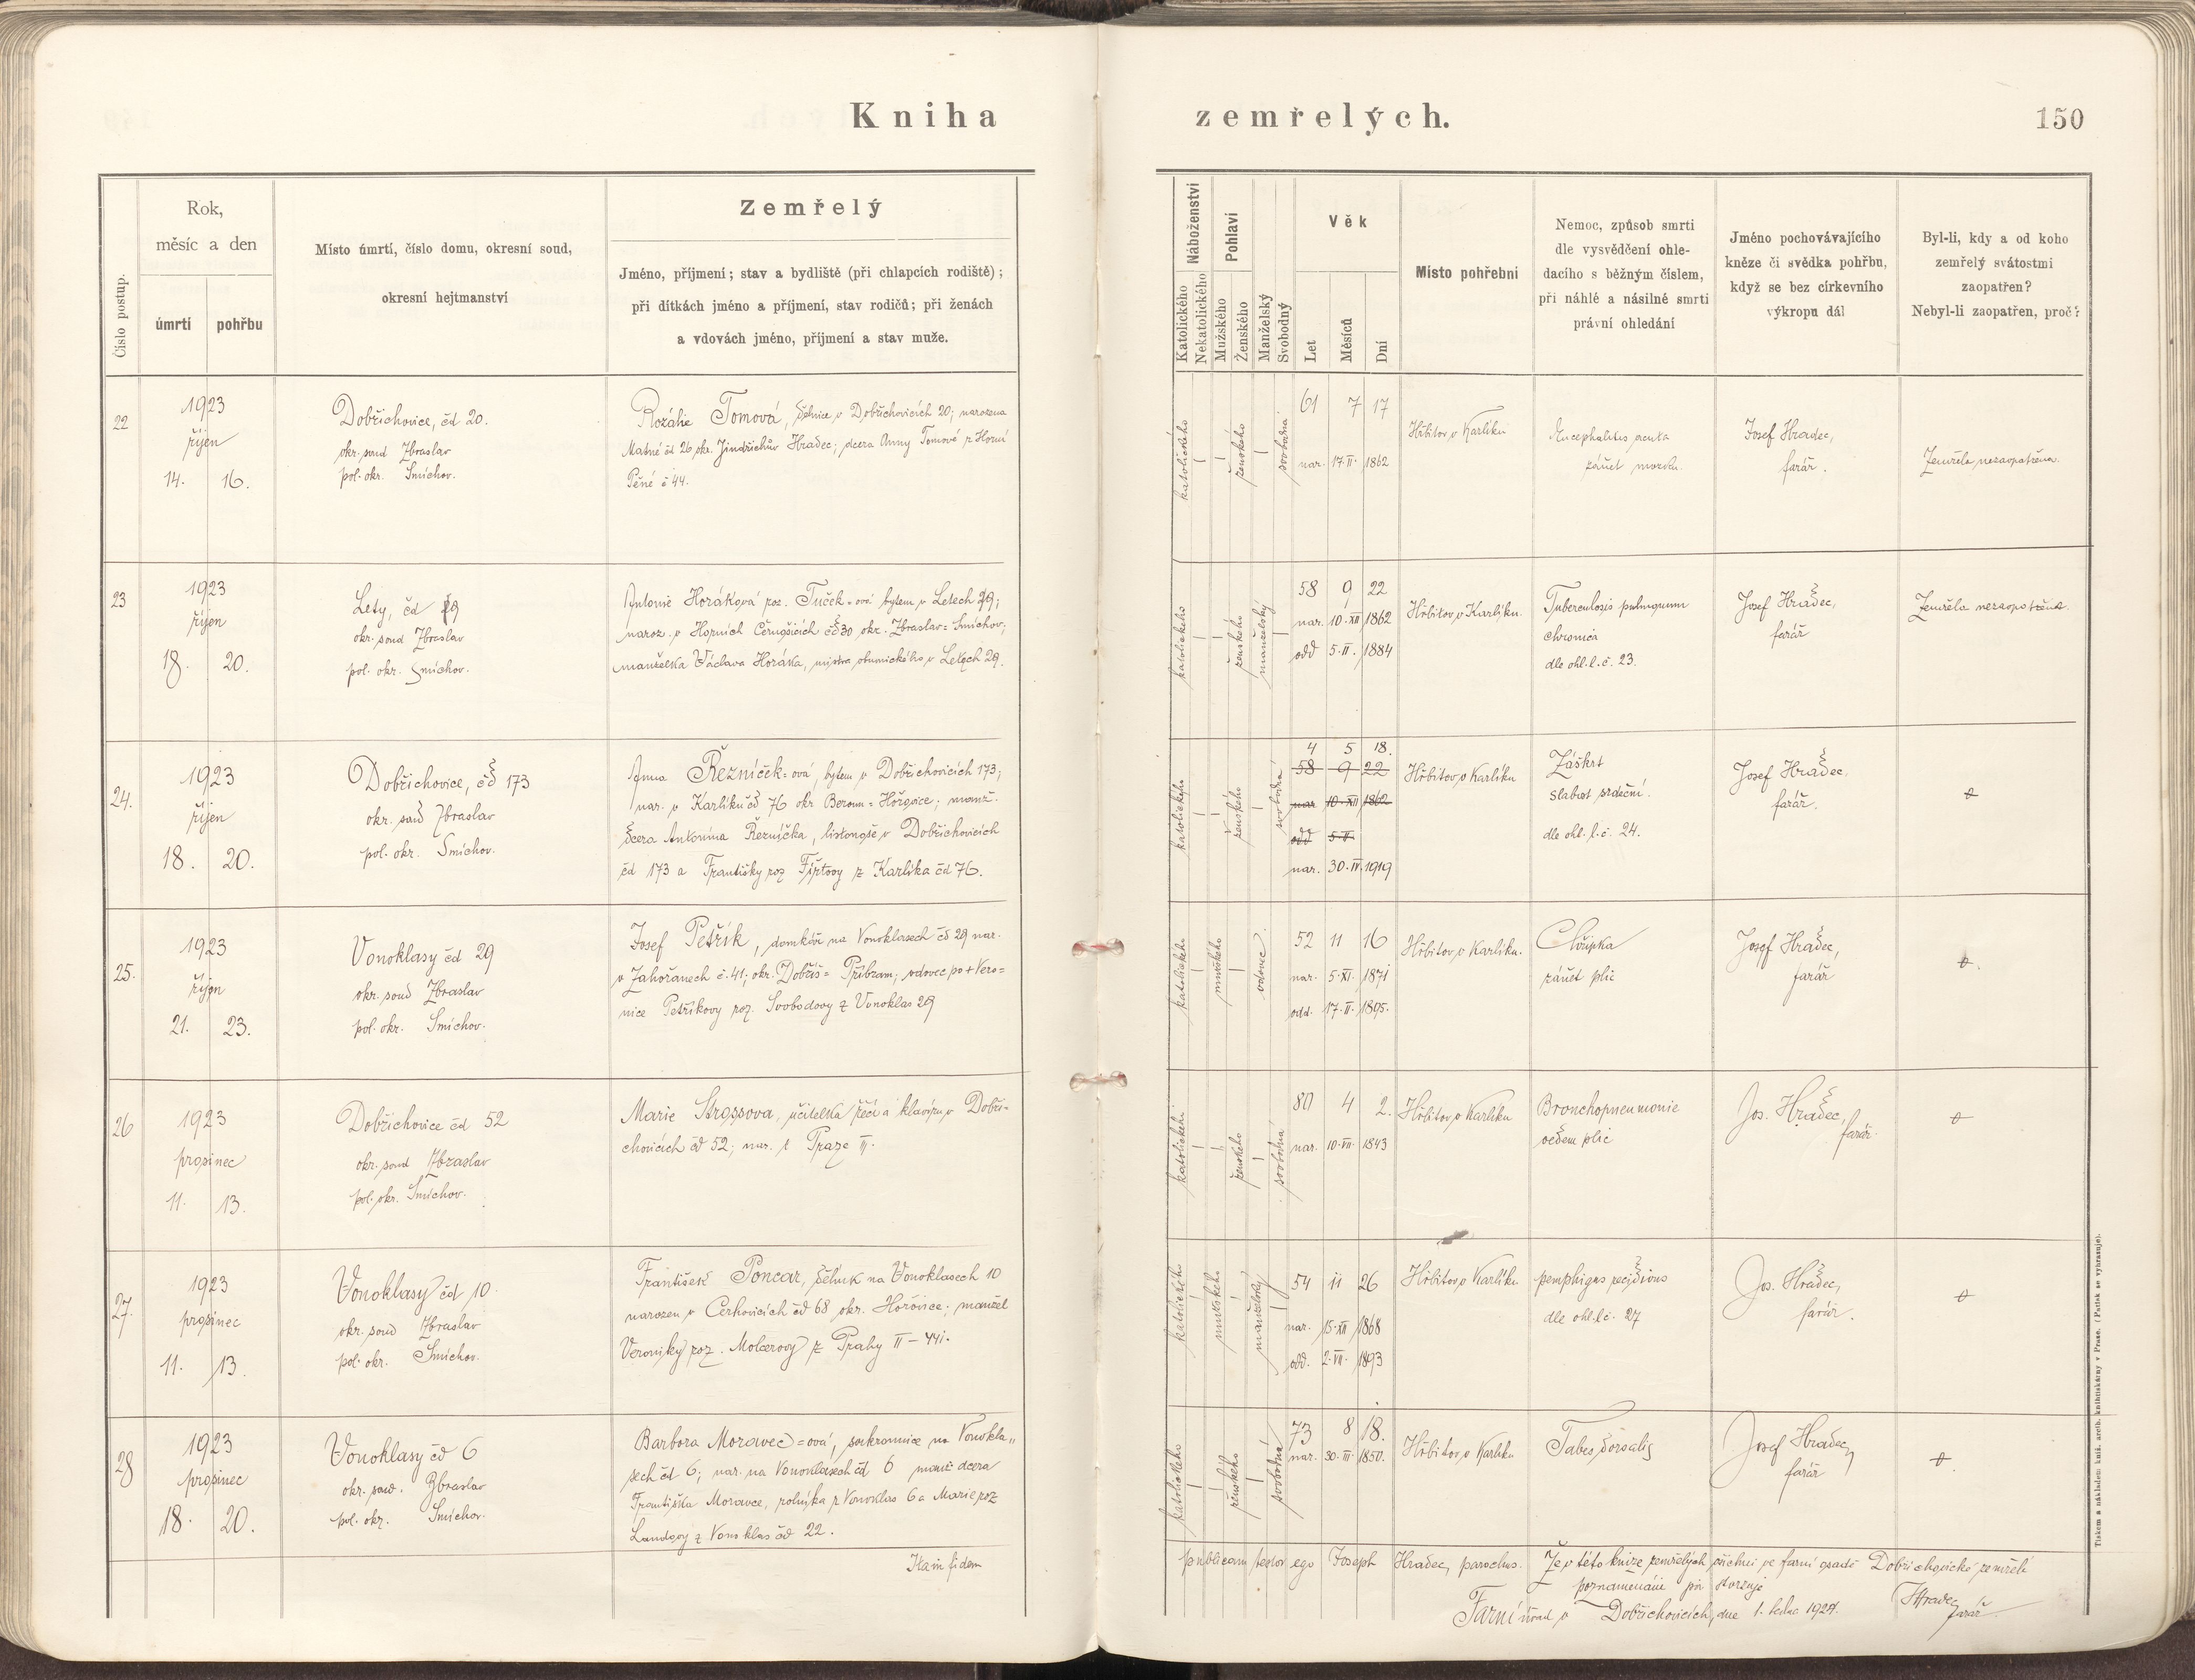 Kniha zemřelých. 150
Číslo postup.
Rok,
měsíc a den
úmrtí pohřbu
Místo úmrtí, číslo domu, okresní soud,
okresní hejtmanství
Zemřelý
Jméno, příjmení; stav a bydliště (při chlapcích rodiště);
při dítkách jméno a příjmení, stav rodičů; při ženách
a vdovách jméno, příjmení a stav muže.
Náboženství
Katolického
Nekatolického
Pohlaví
Mužského
Ženského
Manželský
Svobodný
Věk
Let
Měsíců
Dní
Místo pohřební
Nemoc, způsob smrti
dle vysvědčení ohle-
dacího s běžným číslem,
při náhlé a násilné smrti
právní ohledání
Jméno pochovávajícího
kněze či svědka pohřbu,
když se bez církevního
výkropu dál
Byl-li, kdy a od koho
zemřelý svátostmi
zaopatřen?
Nebyl-li zaopatřen, proč?
22
1923
říjen
14. 16.
Dobřichovice, čd 20.
okr. soud Zbraslav
pol. okr. Smíchov.
Rozálie Tomová, dělnice v Dobřichovicích 20; narozena
Matné čd 26 okr. Jindřichův Hradec; dcera Anny Tomové z Horní
Pěné č 44.
katolického
ženského
svobodná
61 7 17
nar. 17. II. 1862
Hřbitov v Karlíku
Encephalitis acuta
zánět mozku
Josef Hradec,
farář.
Zemřela nezaopatřena.
23
1923
říjen
18. 20.
Lety, čd 29
okr. soud Zbraslav
pol. okr. Smíchov.
Antonie Horáková roz. Tuček=ová bytem v Letech 29;
naroz. v Horních Černošicích čd 30 okr. Zbraslav=Smíchov;
manželka Václava Horáka, mistra obuvnického v Letech 29.
katolického
ženského
manželský
58 9 22
nar. 10. XII 1862
odd 5. II. 1884
Hřbitov v Karlíku.
Tuberculosis pulmonum
chronica
dle ohl. l. č. 23.
Josef Hradec,
farář
Zemřela nezaopatřena.
24.
1923
říjen
18. 20.
Dobřichovice, čd 173
okr. soud Zbraslav
pol. okr. Smíchov.
Anna Řezníček=ová, bytem v Dobřichovicích 173;
nar. v Karlíku čd 76 okr Beroun=Hořovice; manž.
dcera Antonína Řezníčka, listonoše v Dobřichovicích
čd 173 a Františky roz z Karlíka čd 76.
katolického
ženského
svobodná
4 5 18.
58 9 22
nar 10. XII 1862
odd 5. II
nar. 30. IV. 1919
Hřbitov v Karlíku
Záškrt
slabost srdeční.
dle ohl. l. č. 24.
Josef Hradec,
farář.
25.
1923
říjen
21. 23.
Vonoklasy čd 29
okr. soud Zbraslav
pol. okr. Smíchov.
Josef Petřík, domkář na Vonoklasech čd 29 nar.
v Zahořanech č. 41; okr. Dobříš=Příbram; vdovec po + Vero=
nice Petříkovy roz. Svobodovy z Vonoklas 29
katolického
mužského
vdovec.
52 11 16
nar. 5. XI. 1871
odd. 17. II. 1895.
Hřbitov v Karlíku.
Chřipka
zánět plic
Josef Hradec,
farář
26
1923
prosinec
11. 13.
Dobřichovice čd 52
okr. soud Zbraslav
pol. okr. Smíchov.
Marie Strossova, učitelka řečí a klavíru v Dobři=
chovicích čd 52; nar. v Praze II.
katolického
ženského
svobodná
80 4 2.
nar. 10. VII. 1843
Hřbitov v Karlíku
Bronchopneumonie
oedem plic
Jos. Hradec,
farář.
27.
1923
prosinec
11. 13.
Vonoklasy čd 10.
okr. soud Zbraslav
pol. okr. Smíchov.
František Poncar, dělník na Vonoklasech 10
narozen v Cerhovicích čd 68 okr. Hořovice; manžel
Veroniky roz. Molcerovy z Prahy II – 441.
katolického
mužského
manželský
54 11 26
nar. 15. XII 1868
odd. 2. VII. 1893
Hřbitov v Karlíku
pemphigus
dle ohl. l. č. 27
Jos. Hradec,
farář.
28
1923
prosinec
18. 20.
Vonoklasy čd 6
okr. soud. Zbraslav
pol. okr. Smíchov.
Barbora Moravec=ová, soukromnice na Vonokla„
sech čd 6; nar. na Vonoklasech čd 6 manž dcera
Františka Moravce, rolníka z Vonoklas 6 a Marie roz
Landovy z Vonoklas čd 22.
katolického
ženského
svobodná
73 8 18.
nar. 30. III. 1850.
Hřbitov v Karlíku
Tabes dorsalis
Josef Hradec,
farář
Ita in fidem publicam testor ego Joseph Hradec, parochus.
Že v této knize zemřelých všichni ve farní osadě Dobřichovické zemřelí
poznamenáni
Farní úřad v Dobřichovicích, dne 1. ledna 1924.
JHradec
farář
Tiskem a nákladem kníž. arcib. knihtiskárny v Praze. (Patisk se vyhrazuje).